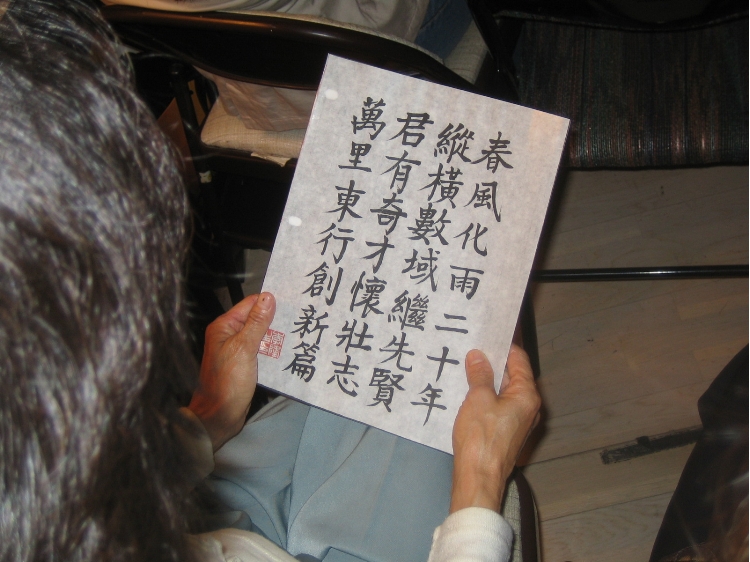 春風化雨二十年
縱橫數域繼先賢
君有奇才懷壯志
萬里東行創新篇